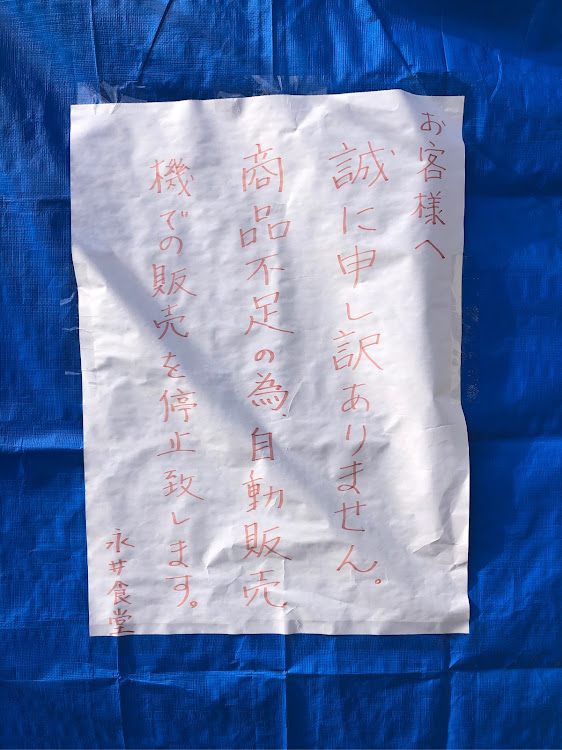 お客様へ
誠に申し訳ありません。
商品不足の為、自動販売
機での販売を停止致します。
永井食堂